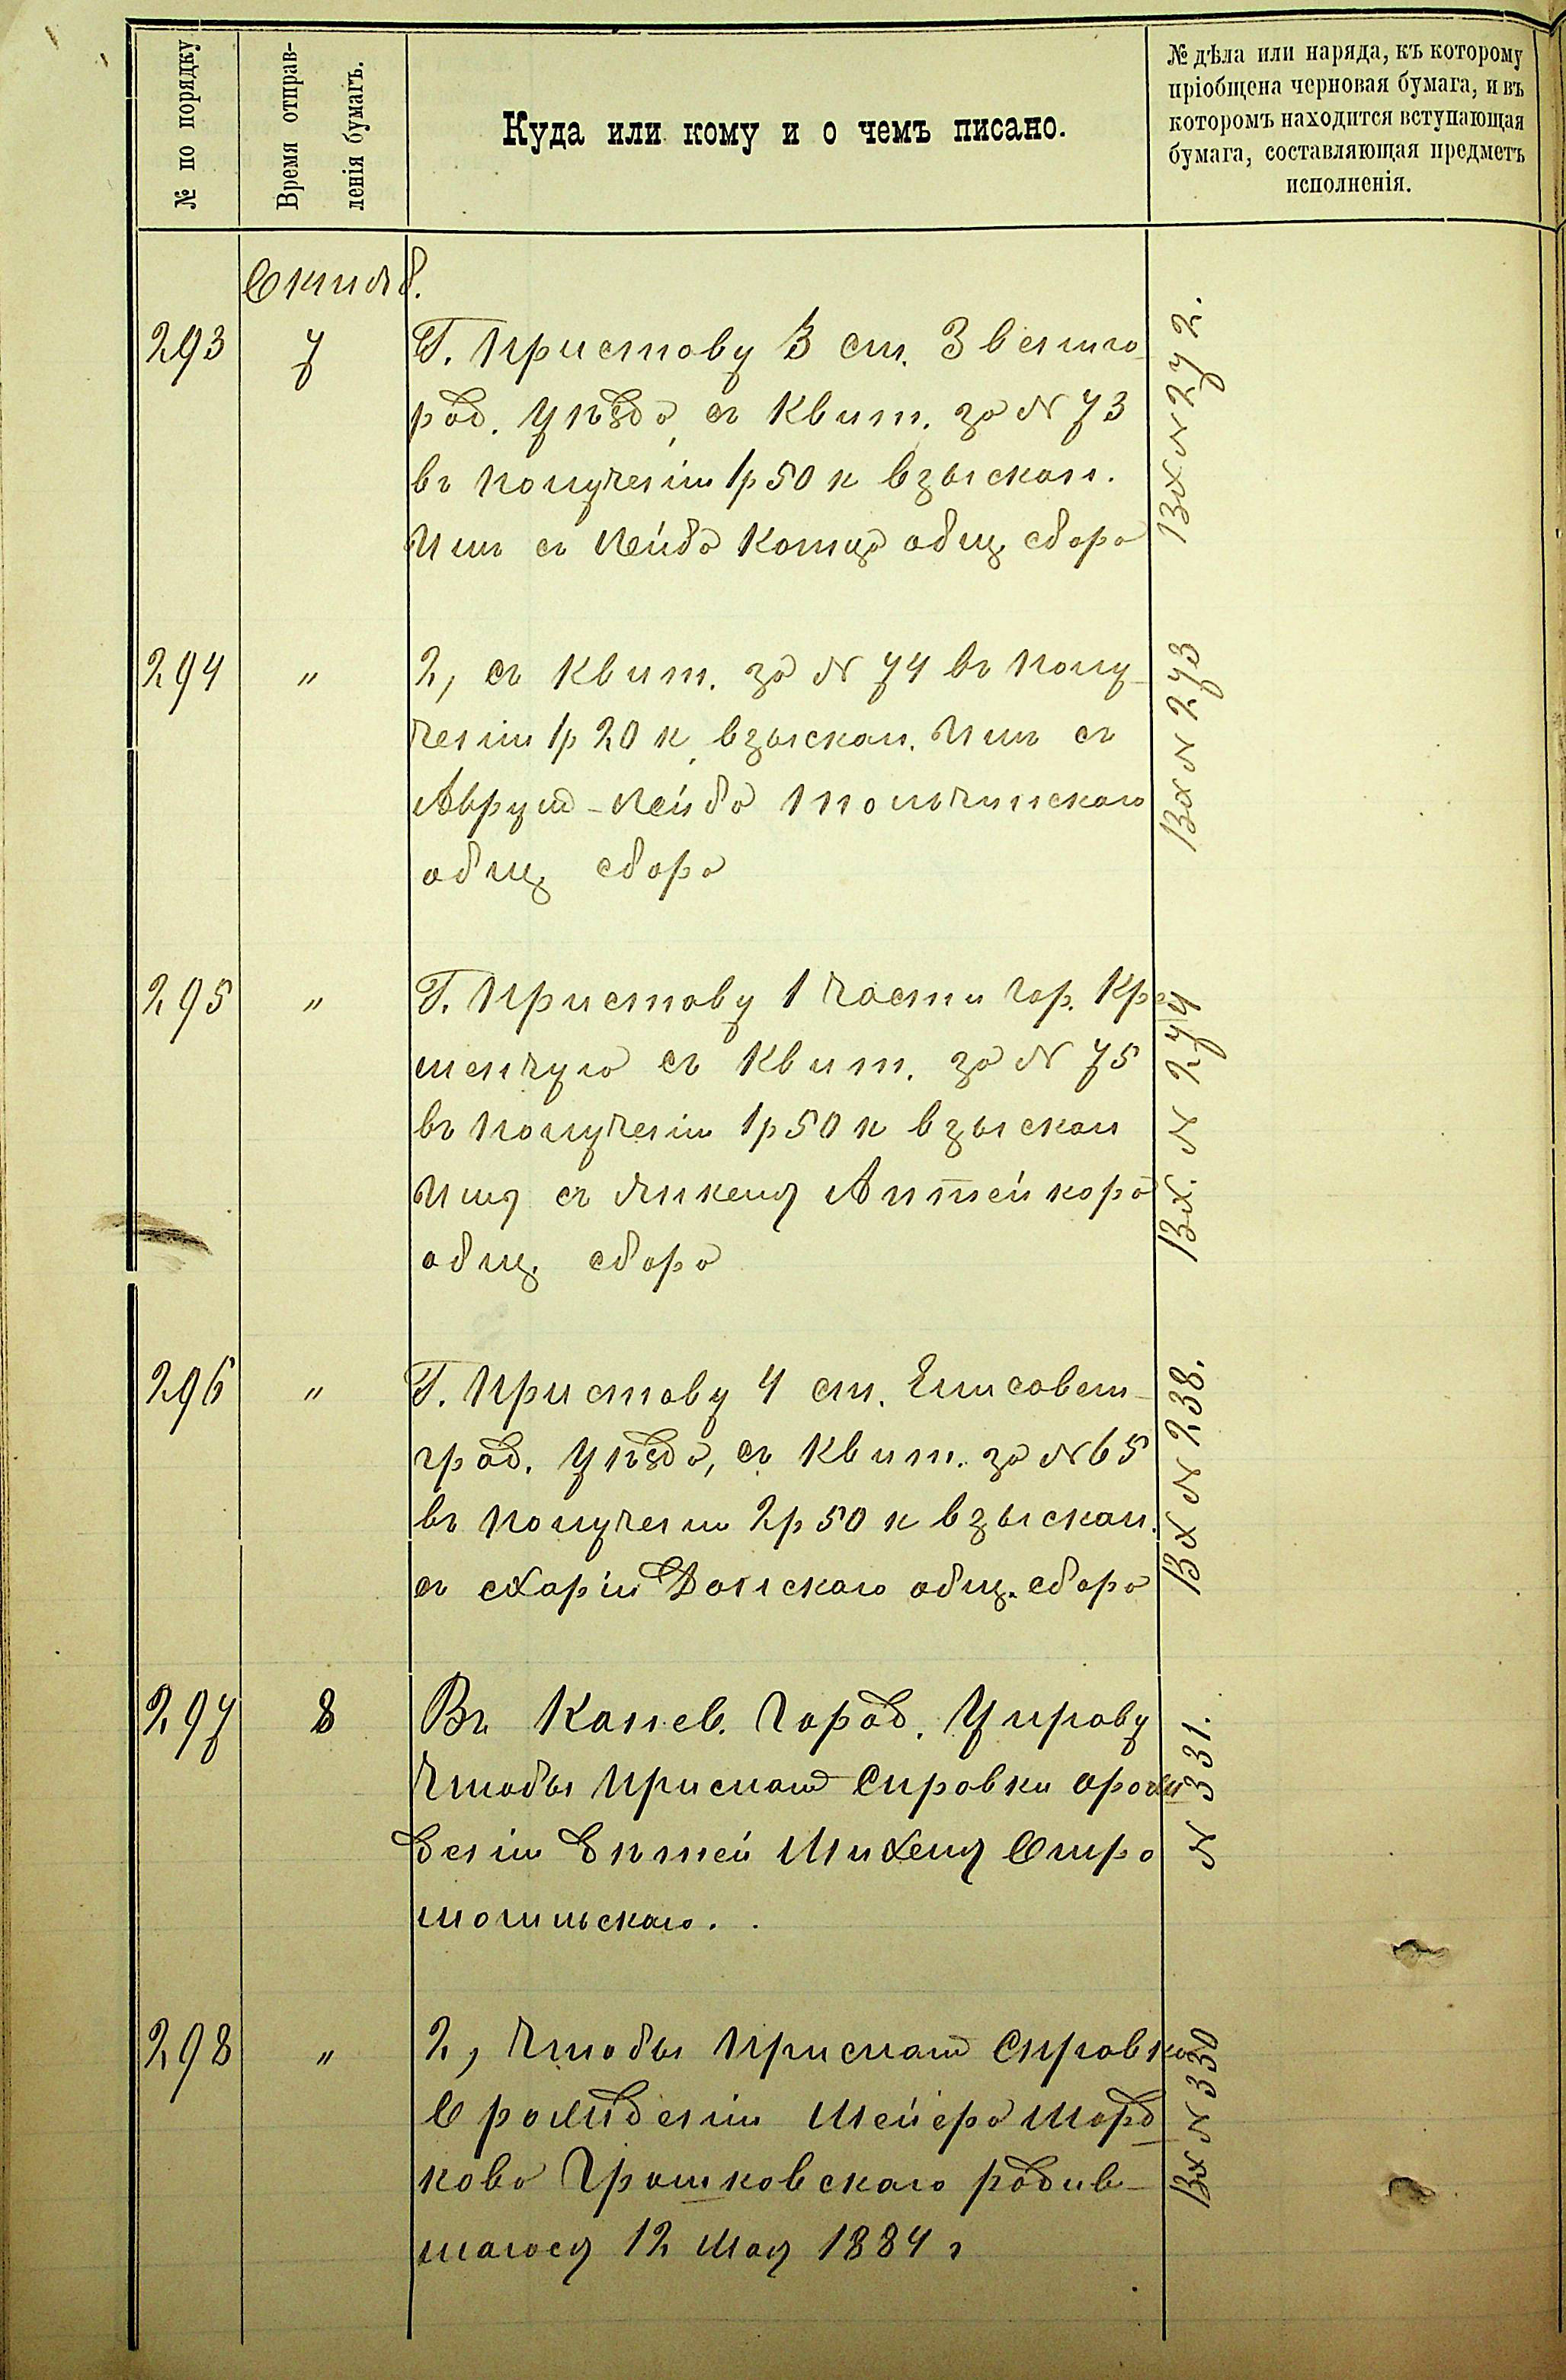 № по порядку
Время отправ-
ленія бумагъ.
Куда или кому и о чемъ писано.
№ дѣла или наряда, къ которому
пріобщена черновая бумага, и въ
которомъ находится вступающая
бумага, составляющая предметъ
исполненія.
Октяб.
293 7 Г. Приставу 3 ст. Звениго-
род. Уѣзда, съ Квит. за № 73
въ полученіи 1р 50 к взыскан.
Им съ Лейба Когана общ. сбора
Вх № 272.
294 " 2, съ Квит. за № 74 въ полу-
ченіи 1р 20 к, взыскан. Им съ
Аврум-Лейба Тольчинскаго
общ сбора
Вх № 273
295 " Г. Приставу 1 части гор. Кре
менчуга съ Квит. за № 75
въ полученіи 1р 50 к взыскан
Им съ
общ. сбора
Вх. № 274
296 " Г. Приставу 4 ст. Елисавет-
град. Уѣзда, съ Квит. за № 65
въ полученіи 2р 50 к взыскан.
съ Донскаго общ. сбора
Вх № 238.
297 8 Въ Канев. Город. Управу
чтобы прислать справки о рож
деніи дѣтей Михеля Остро
могильскаго.
№ 331.
298 " 2, чтобы прислать справку
О рожденіи Мейера Морд
кова Грошковскаго родив-
шагося 12 Мая 1884 г
Вх № 330